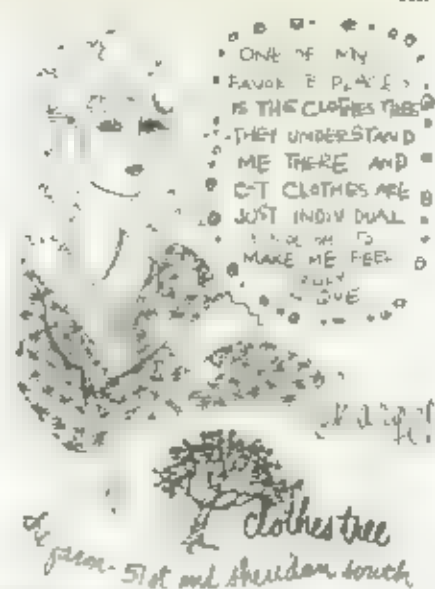 ONE OF MY
FAVORITE PLACES
IS THE CLOTHES TREE
THEY UNDERSTAND
ME THERE AND
CT CLOTHES ARE
JUST INDIVIDUAL
ENOUGH TO
MAKE ME FEEL
LOVE
clothes tree
the farm - 51st and sheridan south